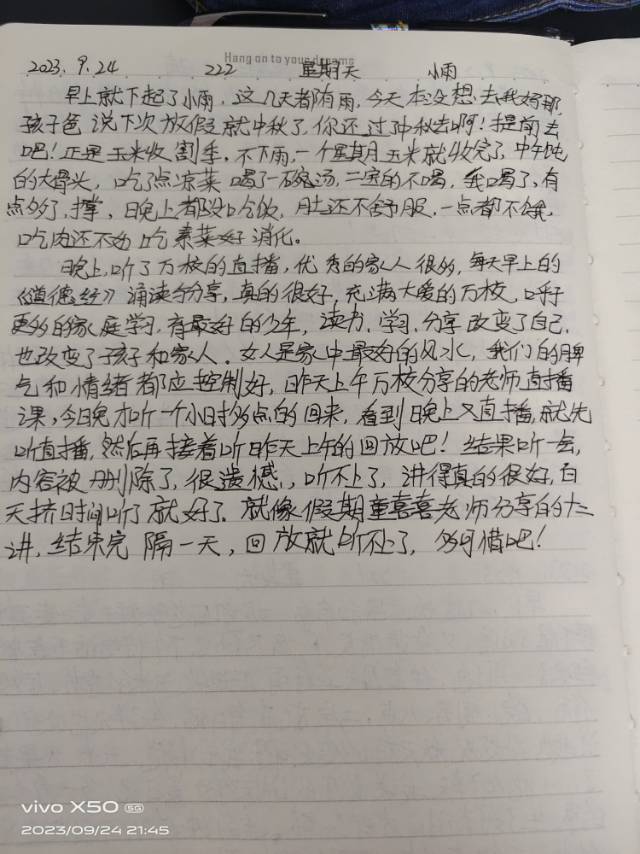 Hang on to your dreams
2023.9.24 222 星期天 小雨
早上就下起了小雨，这几天都有雨，今天本没想去我妈那，
孩子爸说下次放假就中秋了，你还过中秋去啊！提前去
吧！正是玉米收割季，不下雨，一个星期玉米就收完了，中午炖
的大骨头，吃了点凉菜喝了一碗汤，二宝的不喝，我喝了，有
点多了，撑，晚上都没吃饭，肚还不舒服，一点都不饿，
吃肉还不如吃素菜好消化。
晚上，听了万校的直播，优秀的家人很多，每天早上的
《道德经》诵读与分享，真的很好，充满大爱的万校，呼吁
更多的家庭学习，有最好的少年，读书，学习，分享改变了自己，
也改变了孩子和家人。女人是家中最好的风水，我们的脾
气和情绪都应控制好，昨天上午万校分享的老师直播
课，今日晚才听一个小时多点的回来，看到晚上又直播，就先
听直播，然后再接着听昨天上午的回放吧！结果听一会，
内容被删除了，很遗憾，听不上了，讲得真的很好，白
天挤时间听了就好了。就像假期童喜喜老师分享的十二
讲，结束完隔一天，回放就听不了，多可惜吧！
vivo X50 5G
2023/09/24 21:45